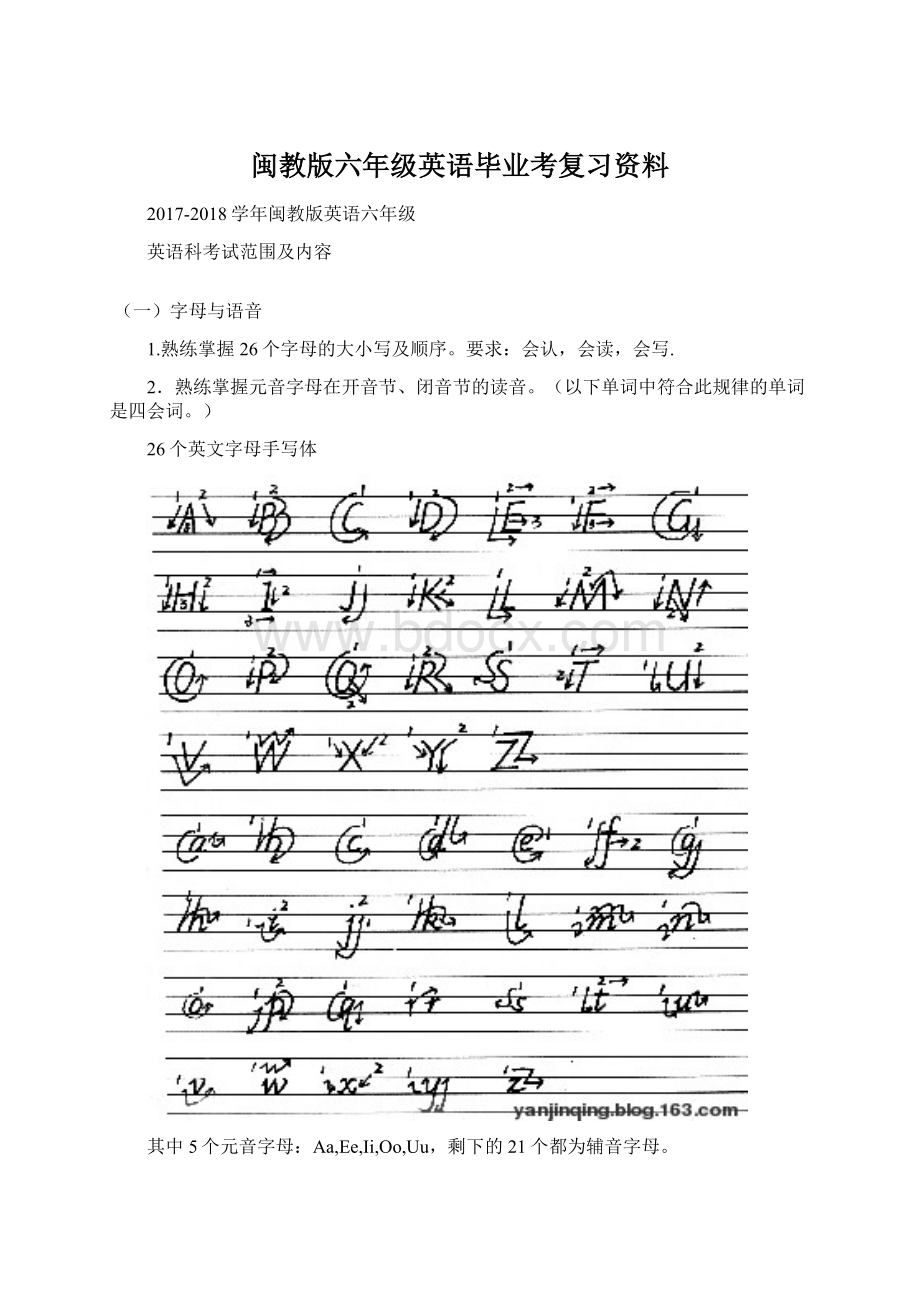 闽教版六年级英语毕业考复习资料
2017-2018 学年闽教版英语六年级
英语科考试范围及内容
（一）字母与语音
1.熟练掌握 26 个字母的大小写及顺序。要求：会认，会读，会写.
2．熟练掌握元音字母在开音节、闭音节的读音。（以下单词中符合此规律的单词
是四会词。）
26 个英文字母手写体
A B C D E F G
H I J K L M N
O P Q R S T U
V W X Y Z
a b c d e f g
h i j k l m n
o p q r s t u
v w x y z
www.bdocx.com
yanjinqing.blog.163.com
其中 5 个元音字母：Aa,Ee,Ii,Oo,Uu，剩下的 21 个都为辅音字母。